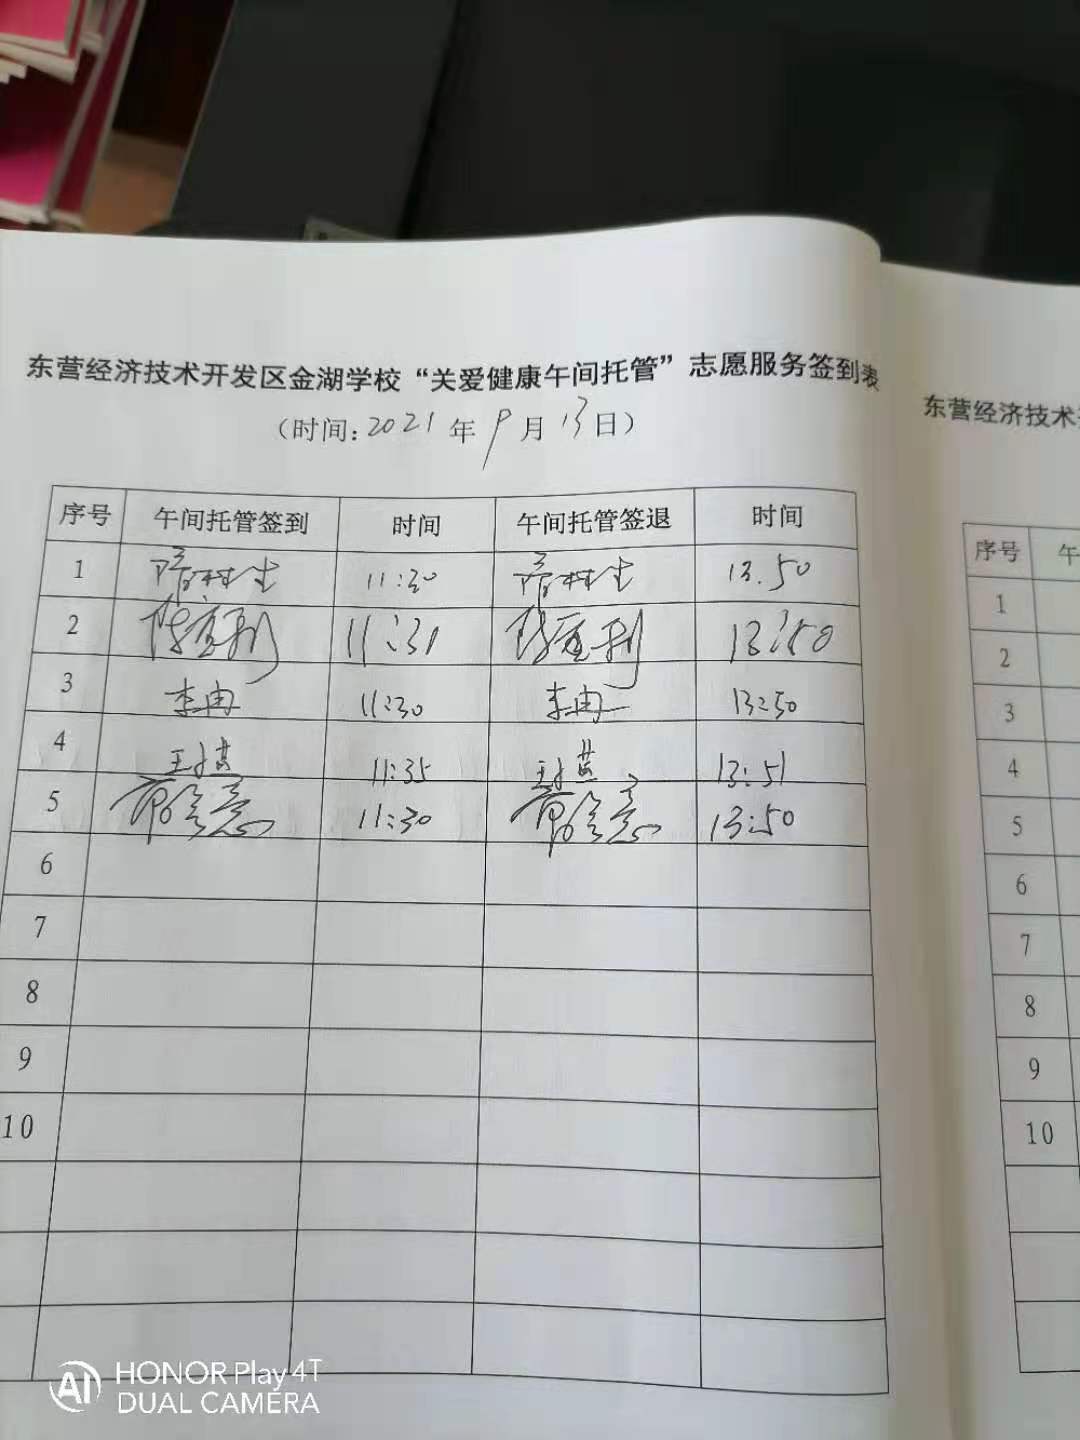 东营经济技术开发区金湖学校“关爱健康午间托管”志愿服务签到表
（时间：2021年9月13日）
序号 午间托管签到 时间 午间托管签退 时间
1 11:30 13.50
2 11:31 13:50
3 李冉 11:30 李冉 13:50
4 11:35 13:51
5 11:30 13:50
6
7
8
9
10
东营经济技术
序号 午
1
2
3
4
5
6
7
8
9
10
AI HONOR Play 4T
DUAL CAMERA